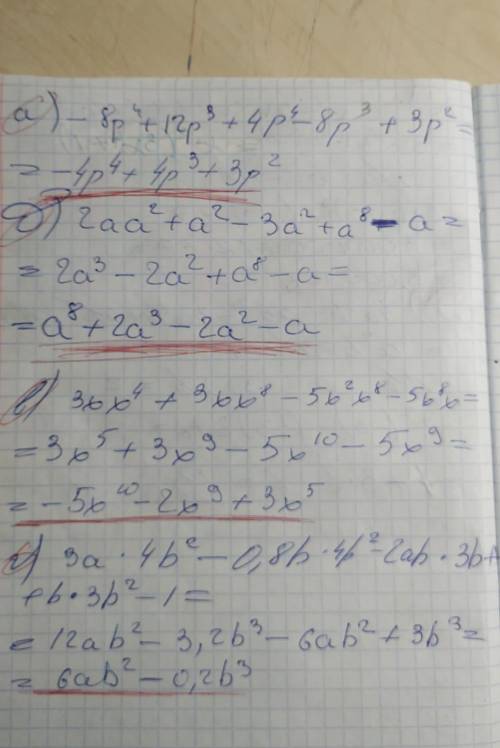 а) - 8p⁴ + 12p³ + 4p⁴ - 8p³ + 3p² =
= -4p⁴ + 4p³ + 3p²
б) 2aa² + a² - 3a² + a⁸ - a =
= 2a³ - 2a² + a⁸ - a =
= a⁸ + 2a³ - 2a² - a
в) 3xx⁴ + 3xx⁸ - 5x²x⁸ - 5x⁸x =
= 3x⁵ + 3x⁹ - 5x¹⁰ - 5x⁹ =
= -5x¹⁰ - 2x⁹ + 3x⁵
г) 3a · 4b² - 0,8b · 4b² - 2ab · 3b +
+ b · 3b² - 1 =
= 12ab² - 3,2b³ - 6ab² + 3b³ =
= 6ab² - 0,2b³